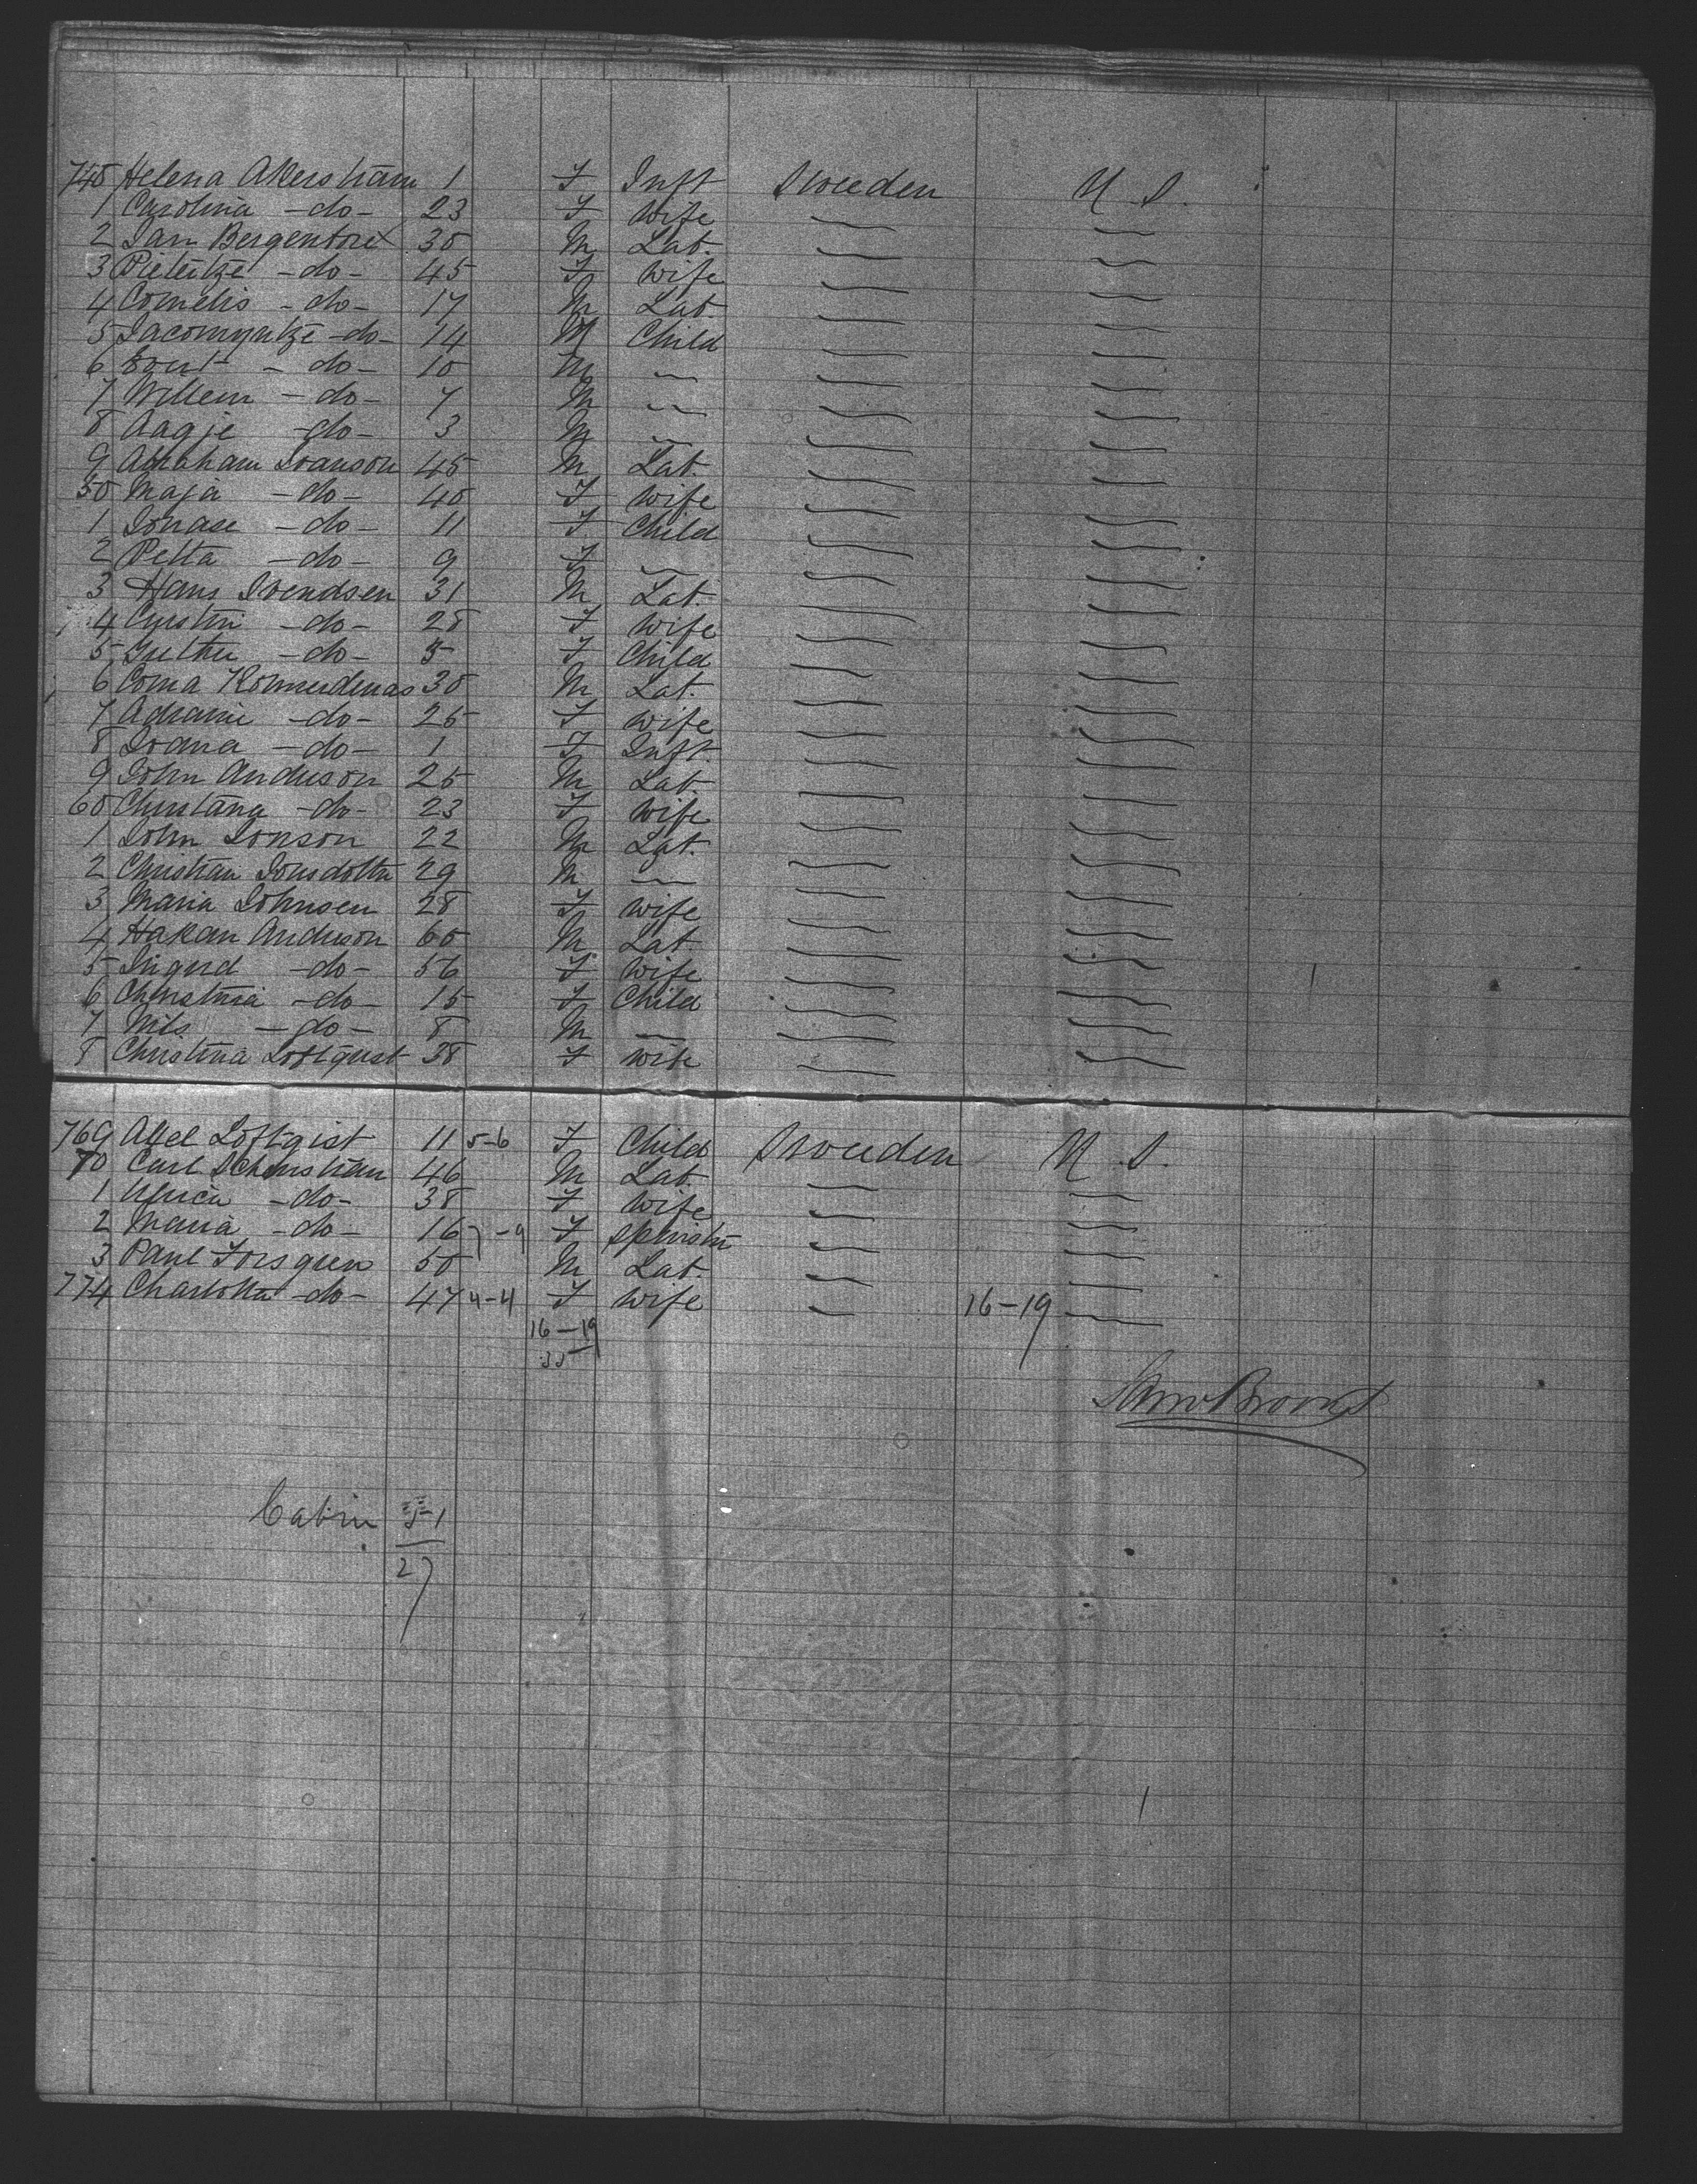 740 Helena Akerstram 1 F Inft Sweden U.S.
1 Carolina -do- 23 F Wife
2 Jan Bergentoret 30 M Lab.
3 Pietertze -do- 45 F Wife
4 Cornelis -do- 17 M Lab.
5 Jacomyntze -do- 14 M Child
6 -do- 10 M
7 Willem -do- 7 M
8 Aagje -do- 3 M
9 Abraham Svanson 45 M Lab.
50 Maja -do- 40 F Wife
1 Jonase -do- 11 F Child
2 Petta -do- 9 F
3 Hans Svendsen 31 M Lab.
4 -do- 28 F Wife
5 -do- 5 F Child
6 Corna 30 M Lab.
7 Adraine -do- 25 F Wife
8 Ivana -do- 1 F Inft.
9 John Anderson 25 M Lab.
60 Christana -do- 23 F Wife
1 John Jonson 22 M Lab.
2 Christian Jonsdotter 29 M
3 Maria Johnsen 28 F Wife
4 Hakan Anderson 60 M Lab.
5 Ingerd -do- 56 F Wife
6 Christina -do- 15 F Child
7 Nils -do- 8 M
8 Christina Loftqust 38 F Wife
769 Axel Loftqist 11 5-6 F Child Sweden U.S.
70 Carl 46 M Lab.
1 Ulrica -do- 38 F Wife
2 Maria -do- 16 7-9 F Spinster
3 Paul Forsgren 50 M Lab.
774 Charlotta -do- 47 4-4 F Wife 16-19
16-19
35
Cabin
27